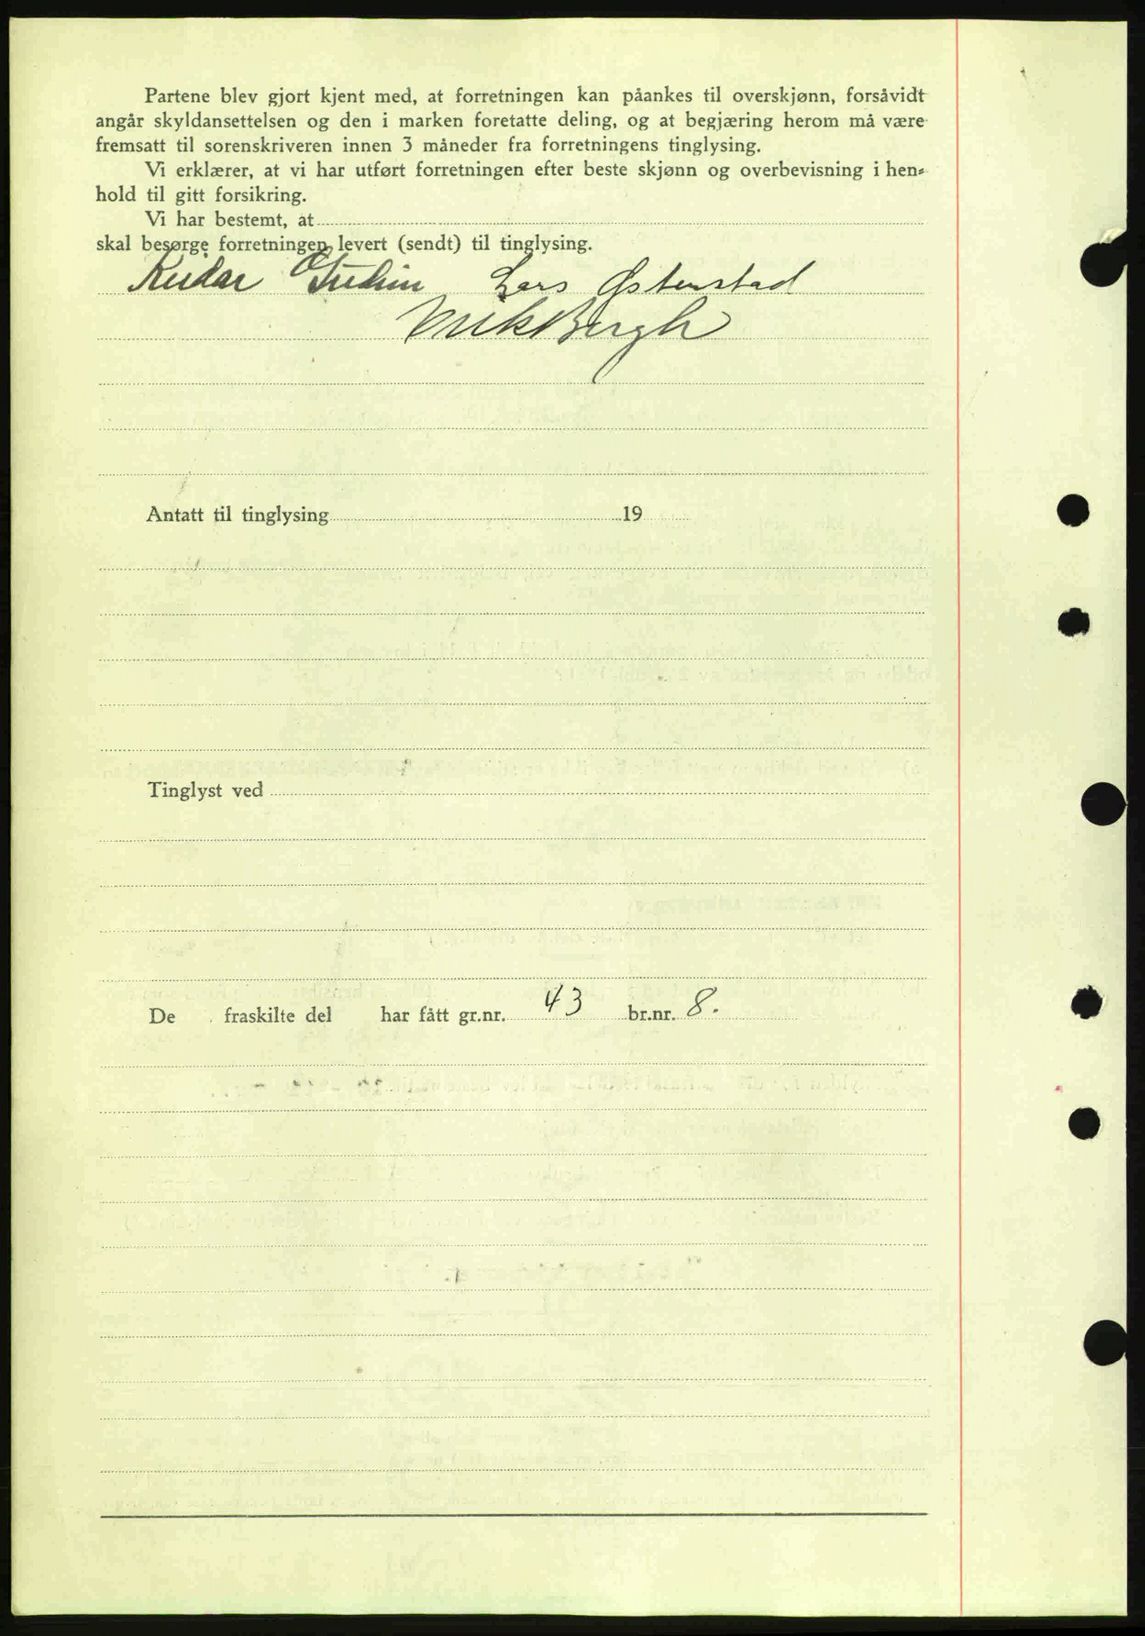 Partene blev gjort kjent med, at forretningen kan påankes til overskjønn, forsåvidt
angår skyldansettelsen og den i marken foretatte deling, og at begjæring herom må være
fremsatt til sorenskriveren innen 3 måneder fra forretningens tinglysing.
Vi erklærer, at vi har utført forretningen efter beste skjønn og overbevisning i hen-
hold til gitt forsikring.
Vi har bestemt, at
skal besørge forretningen levert (sendt) til tinglysing.
Reidar Lars Østenstad
Bergh
Antatt til tinglysing 19
Tinglyst ved
De fraskilte del har fått gr.nr. 43 br.nr. 8.